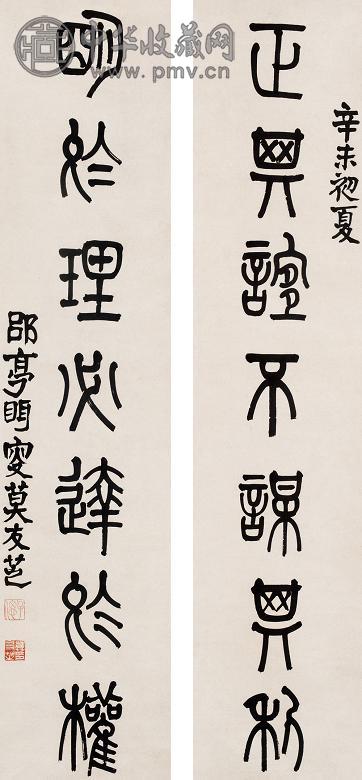 中华收藏网
www.pmv.cn
辛未初夏
正其誼不謀其利
明於理必達於權
郘亭眲叜莫友芝